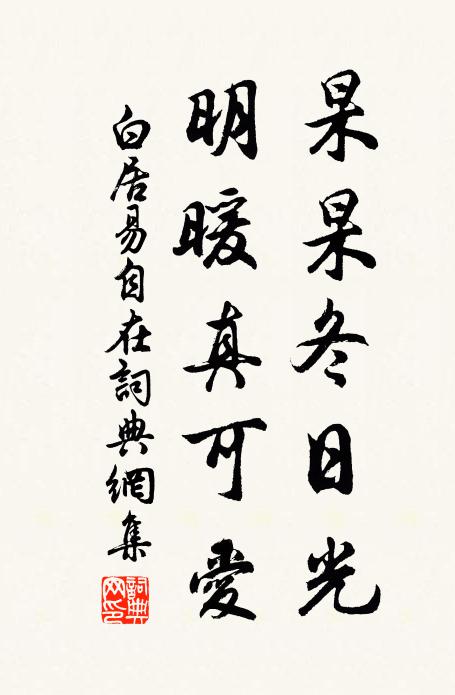 杲杲冬日光
明暖真可愛
白居易自在詞典網集
詞典網印